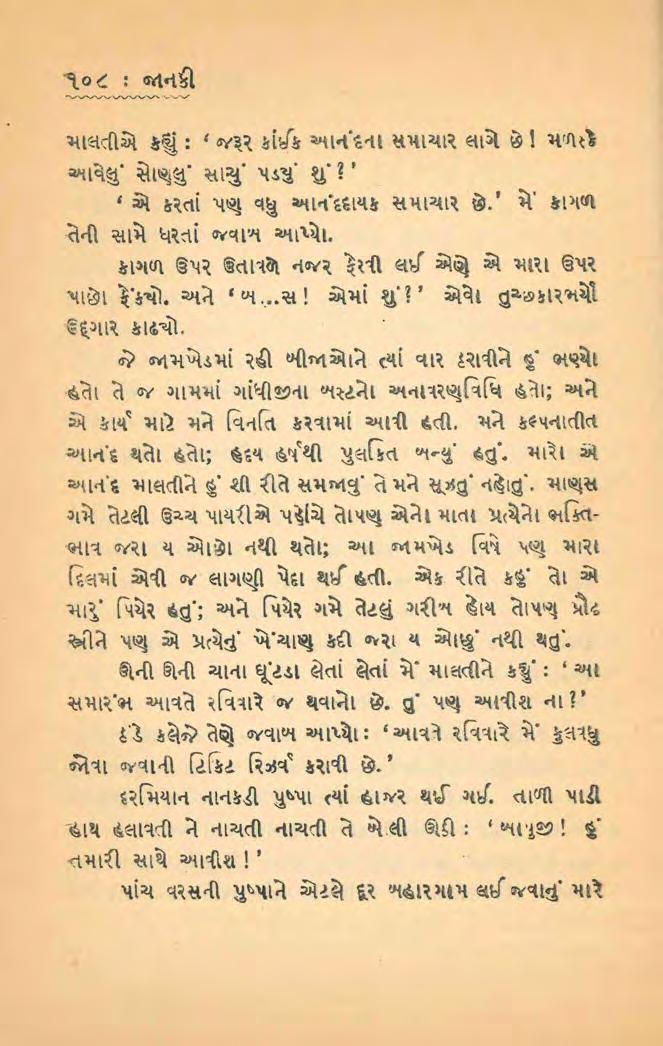 ૧૦૮ : જાનકી
માલતીએ કહ્યું : ‘ જરૂર કાંઈક આનંદના સમાચાર લાગે છે ! મળસ્કે
આવેલું સોણલું સાચું પડ્યું શું ? ’
‘ એ કરતાં પણ વધુ આનંદદાયક સમાચાર છે. ’ મેં કાગળ
તેની સામે ધરતાં જવાબ આપ્યો.
કાગળ ઉપર ઉતાવળે નજર ફેરવી લઈ એણે એ મારા ઉપર
પાછો ફેંક્યો. અને ‘ બ...સ ! એમાં શું ? ’ એવો તુચ્છકારભર્યો
ઉદ્ગાર કાઢ્યો.
જે જામખેડમાં રહી બીજાઓને ત્યાં વાર કરાવીને હું ભણ્યો
હતો તે જ ગામમાં ગાંધીજીના બસ્ટનો અનાવરણવિધિ હતો; અને
એ કાર્ય માટે મને વિનતિ કરવામાં આવી હતી. મને કલ્પનાતીત
આનંદ થતો હતો; હૃદય હર્ષથી પુલકિત બન્યું હતું. મારો એ
આનંદ માલતીને હું શી રીતે સમજાવું તે મને સૂઝતું નહોતું. માણસ
ગમે તેટલી ઉચ્ચ પાયરીએ પહોંચે તોપણ એનો માતા પ્રત્યેનો ભક્તિ-
ભાવ જરા ય ઓછો નથી થતો; આ જામખેડ વિષે પણ મારા
દિલમાં એવી જ લાગણી પેદા થઈ હતી. એક રીતે કહું તો એ
મારું પિયેર હતું; અને પિયેર ગમે તેટલું ગરીબ હોય તોપણ પ્રૌઢ
સ્ત્રીને પણ એ પ્રત્યેનું ખેંચાણ કદી જરા ય ઓછું નથી થતું.
ઊની ઊની ચાના ઘૂંટડા લેતાં લેતાં મેં માલતીને કહ્યું : ‘ આ
સમારંભ આવતે રવિવારે જ થવાનો છે. તું પણ આવીશ ના ? ’
ઠંડે કલેજે તેણે જવાબ આપ્યો : ‘ આવતે રવિવારે મેં કુલવધુ
જોવા જવાની ટિકિટ રિઝર્વ કરાવી છે. ’
દરમિયાન નાનકડી પુષ્પા ત્યાં હાજર થઈ ગઈ. તાળી પાડી
હાથ હલાવતી ને નાચતી નાચતી તે બોલી ઊઠી : ‘ બાપુજી ! હું
તમારી સાથે આવીશ ! ’
પાંચ વરસની પુષ્પાને એટલે દૂર બહારગામ લઈ જવાનું મારે